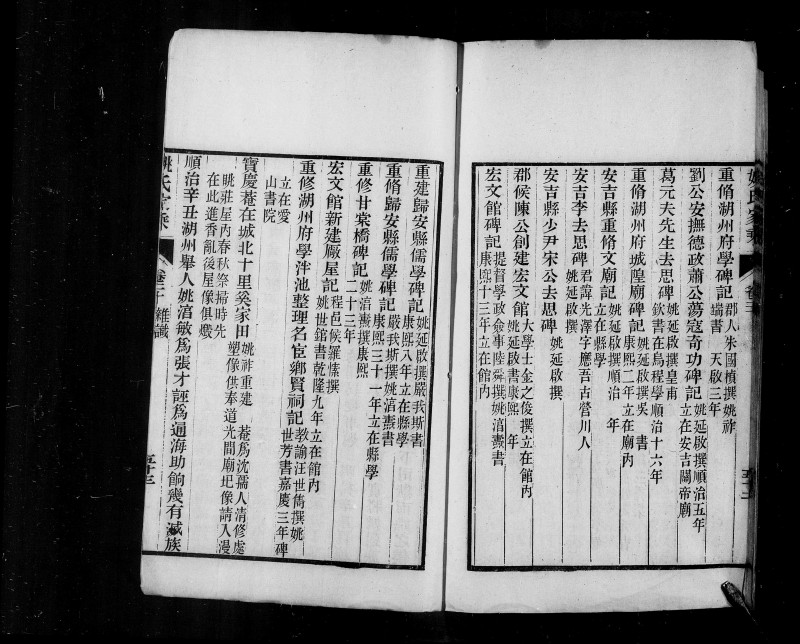 重脩湖州府學碑記郡人朱國楨撰姚祚端書 天啟三年
劉公安撫德政蕭公蕩寇奇功碑記姚延啟撰順治五年立在安吉關帝廟
葛元夫先生去思碑姚延啟撰皇甫欽書在烏程學順治十六年
重脩湖州府城隍廟碑記姚延啟撰吳 書康熙二年立在廟內
安吉縣重脩文廟記姚延啟撰順治 年立在縣學
安吉李去思碑君諱光澤字應吾古營川人姚延啟撰
安吉縣少尹宋公去思碑姚延啟撰
郡侯陳公創建宏文館碑記大學士金之俊撰立在館內姚延啟書康熙 年
宏文館碑記提督學政僉事陸舜撰姚淯燾書康熙十三年立在館內
重建歸安縣儒學碑記姚延啟撰嚴我斯書康熙八年立在縣學
重脩歸安縣儒學碑記嚴我斯撰姚淯燾書康熙三十一年立在縣學
重修甘棠橋碑記姚淯燾撰康熙二十三年
宏文館新建厰屋記程邑侯羅愫撰姚世錧書乾隆九年立在館內
重修湖州府學泮池整理名宦鄉賢祠記教諭汪世雋撰姚世芳書嘉慶三年碑立在愛山書院
寶慶菴在城北十里奚家田姚祚重建 菴為沈孺人清修處塑像供奉道光間廟圮像請入漫
眺莊屋丙春秋祭掃時先在此進香亂後屋像俱燬
順治辛丑湖州舉人姚淯敏為張才誣為通海助餉幾有滅族
姚氏家乘 卷三十 雜識 五十三